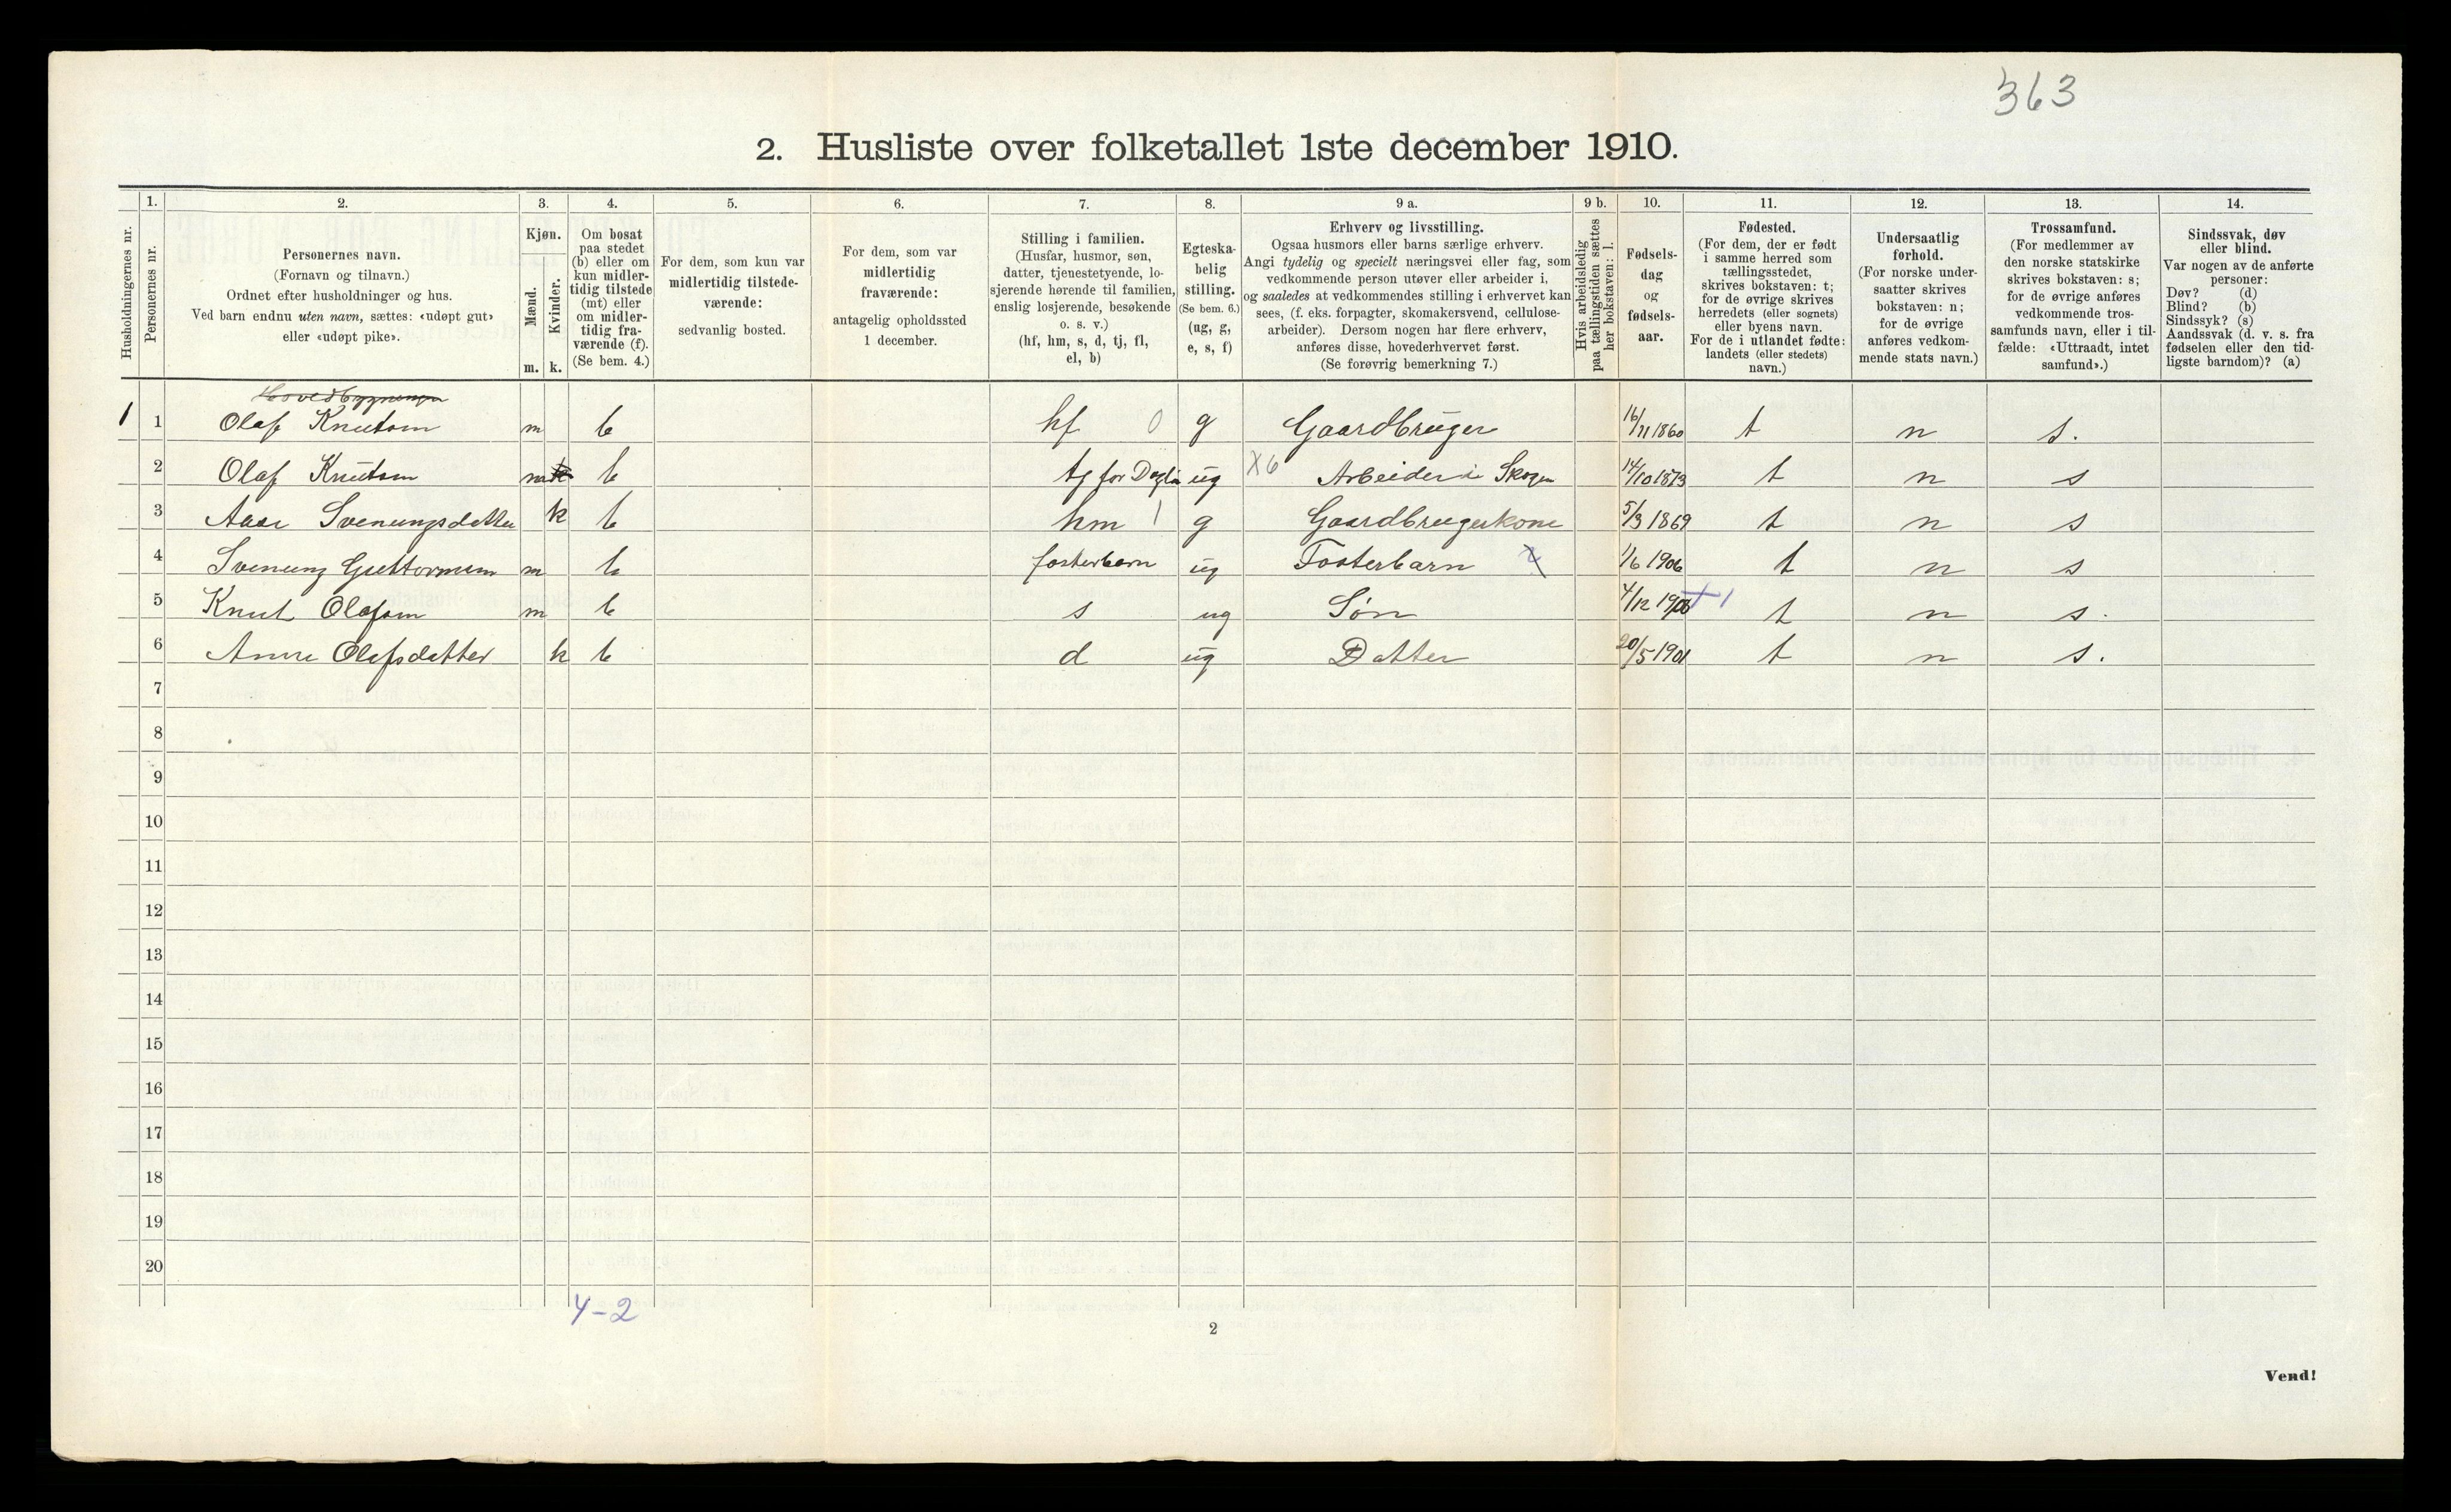 363
2. Husliste over folketallet 1ste december 1910.
Husholdningernes nr.
1.
Personernes nr.
2.
Personernes navn.
(Fornavn og tilnavn.)
Ordnet efter husholdninger og hus.
Ved barn endnu uten navn, sættes: «udøpt gut»
eller «udøpt pike».
3.
Kjøn.
Mænd.
Kvinder.
m. k.
4.
Om bosat
paa stedet
(b) eller om
kun midler-
tidig tilstede
(mt) eller
om midler-
tidig fra-
værende (f).
(Se bem. 4.)
5.
For dem, som kun var
midlertidig tilstede-
værende:
sedvanlig bosted.
6.
For dem, som var
midlertidig
fraværende:
antagelig opholdssted
1 december.
7.
Stilling i familien.
(Husfar, husmor, søn,
datter, tjenestetyende, lo-
sjerende hørende til familien,
enslig losjerende, besøkende
o. s. v.)
(hf, hm, s, d, tj, fl,
el, b)
8.
Egteska-
belig
stilling.
(Se bem. 6.)
(ug, g,
e, s, f)
9 a.
Erhverv og livsstilling.
Ogsaa husmors eller barns særlige erhverv.
Angi tydelig og specielt næringsvei eller fag, som
vedkommende person utøver eller arbeider i,
og saaledes at vedkommendes stilling i erhvervet kan
sees, (f. eks. forpagter, skomakersvend, cellulose-
arbeider). Dersom nogen har flere erhverv,
anføres disse, hovederhvervet først.
(Se forøvrig bemerkning 7.)
9 b.
Hvis arbeidsledig
paa tællingstiden sættes
her bokstaven: l.
10.
Fødsels-
dag
og
fødsels-
aar.
11.
Fødested.
(For dem, der er født
i samme herred som
tællingsstedet,
skrives bokstaven: t;
for de øvrige skrives
herredets (eller sognets)
eller byens navn.
For de i utlandet fødte:
landets (eller stedets)
navn.)
12.
Undersaatlig
forhold.
(For norske under-
saatter skrives
bokstaven: n;
for de øvrige
anføres vedkom-
mende stats navn.)
13.
Trossamfund.
(For medlemmer av
den norske statskirke
skrives bokstaven: s;
for de øvrige anføres
vedkommende tros-
samfunds navn, eller i til-
fælde: «Uttraadt, intet
samfund».)
14.
Sindssvak, døv
eller blind.
Var nogen av de anførte
personer:
Døv? (d)
Blind? (b)
Sindssyk? (s)
Aandssvak (d. v. s. fra
fødselen eller den tid-
ligste barndom)? (a)
Hovedbygningen
1 1 Olaf Knutson m b hf 0 g Gaardbruger 16/11 1860 t n s.
2 Olaf Knutson m b tj for ug X6 Arbeider i Skogen 14/10 1873 t n s
3 Aase Svenungsdatter k b hm 1 g Gaardbrugerkone 5/3 1869 t n s
4 Svenung Guttormsen m b fosterbarn ug Fosterbarn 1/6 1906 t n s
5 Knut Olafson m b s ug Søn 4/12 t n s.
6 Anne Olafsdatter k b d ug Datter 20/5 1901 t n s.
7
8
9
10
11
12
13
14
15
16
17
18
19
20
4-2
2
Vend!